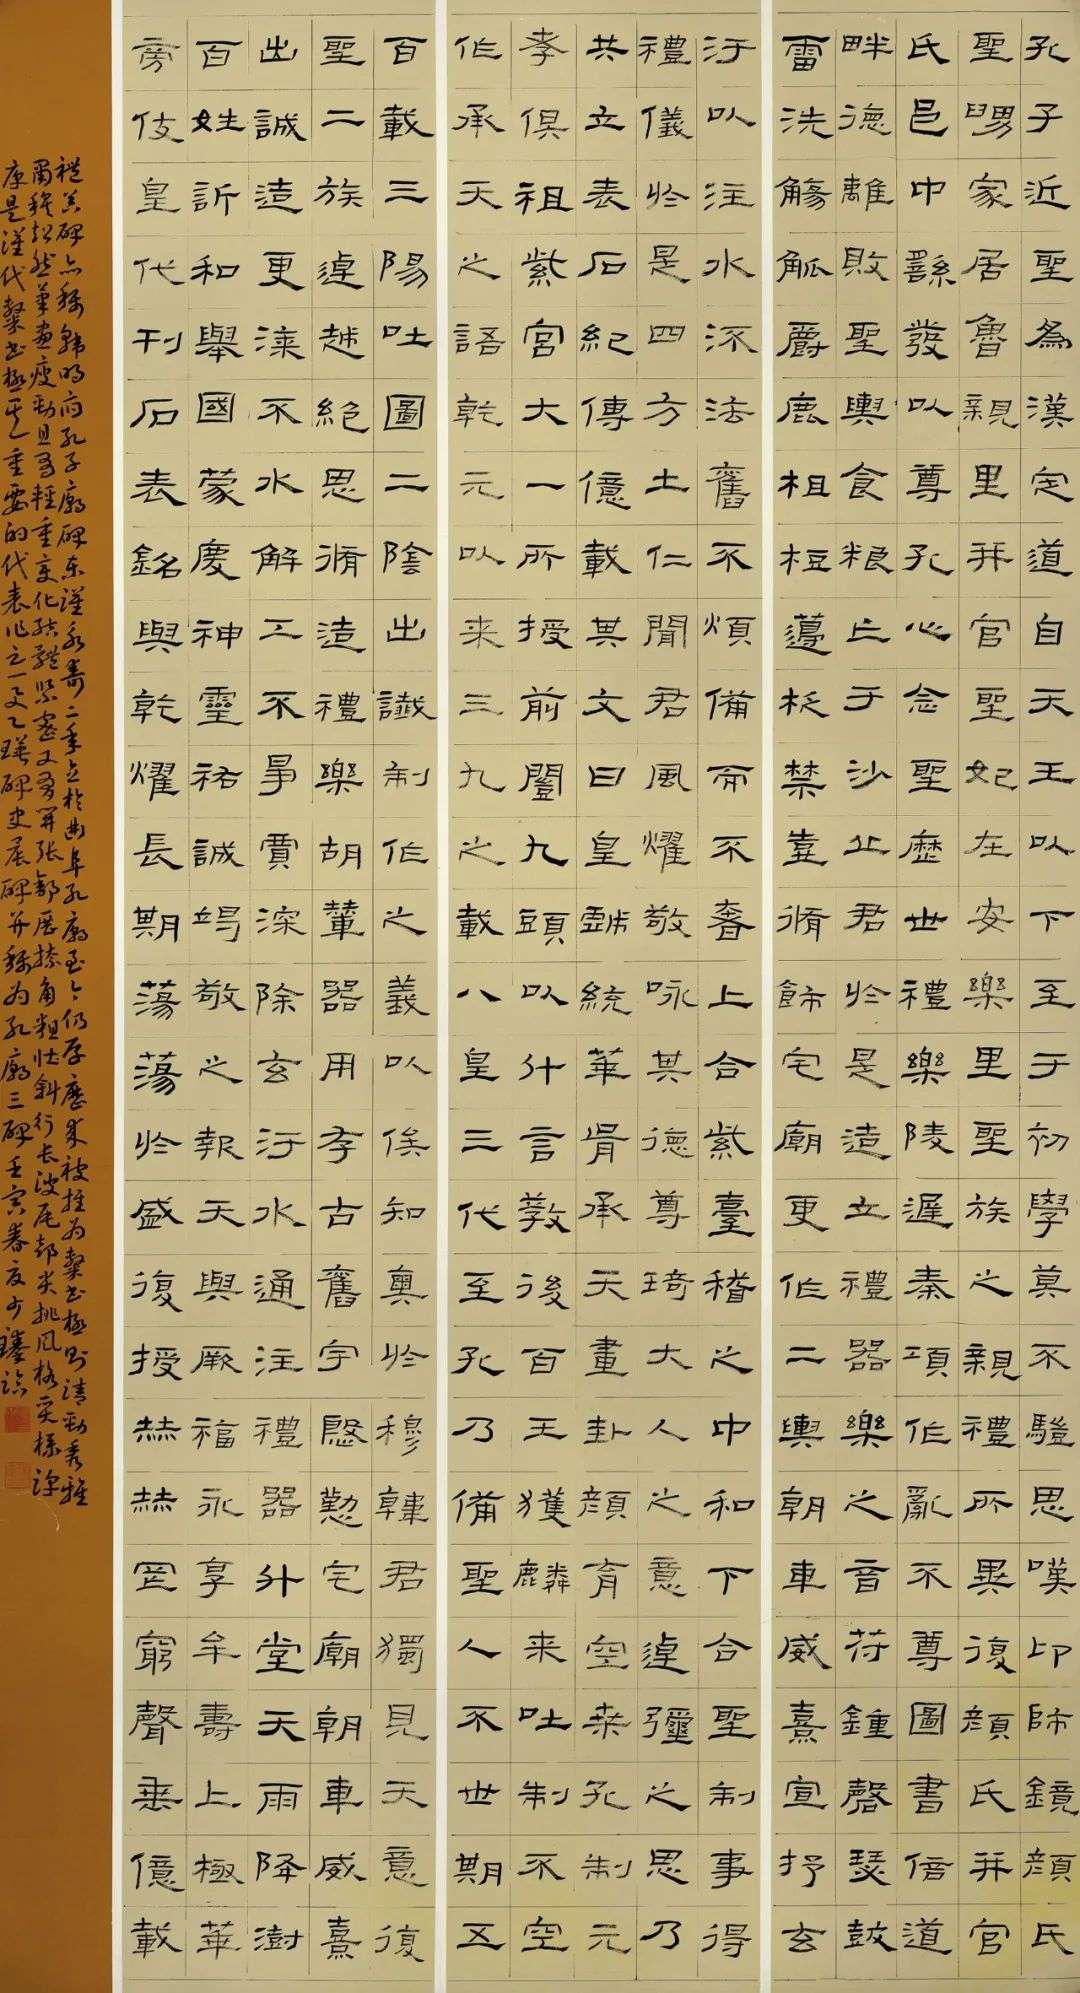 孔子近聖為漢定道自天王以下至于初學莫不騩思嘆卬師鏡顏氏
聖舅家居魯親里并官聖妃在安樂里聖族之親禮所異復顏氏并官
氏邑中繇發以尊孔心念聖歷世禮樂陵遲秦項作亂不尊圖書倍道
畔德離敗聖輿食粮亡于沙丘君於是造立禮器樂之音符鍾磬瑟鼓
雷洗觴觚爵鹿柤梪籩柉禁壺脩飾宅廟更作二輿朝車威熹宣抒玄
汙以注水流法舊不煩備而不奢上合紫臺稽之中和下合聖制事得
禮儀於是四方土仁聞君風燿敬咏其德尊琦大人之意逴彌之思乃
共立表石紀傳億載其文曰皇戲統華胥承天畫卦顏育空桑孔制元
孝俱祖紫宮大一所授前闓九頭以什言教後百王獲麟来吐制不空
作承天之語乾元以来三九之載八皇三代至孔乃備聖人不世期五
百載三陽吐圖二陰出讖制作之義以俟知奧於穆韓君獨見天意復
聖二族逴越絕思脩造禮樂胡輦器用存古舊宇慇懃宅廟朝車威熹
出誠造更漆不水解工不爭賈深除玄汙水通注禮器升堂天雨降澍
百姓訢和舉國蒙慶神靈祐誠竭敬之報天與厥福永享牟壽上極華
旁伎皇代刊石表銘與乾燿長期蕩蕩於盛復授赫赫罔窮聲垂億載
禮器碑亦稱韓明府孔子廟碑東漢永壽二年立於曲阜孔廟至今仍存歷來被推為隸書極則清勁秀雅
肅穆超然筆畫瘦勁且多輕重變化結體緊密又多開張捺角粗壮斜行長波尾部尖挑風格多樣
康是漢代隸書極其重要的代表作之一與乙瑛碑史晨碑并稱為孔廟三碑壬寅春臨